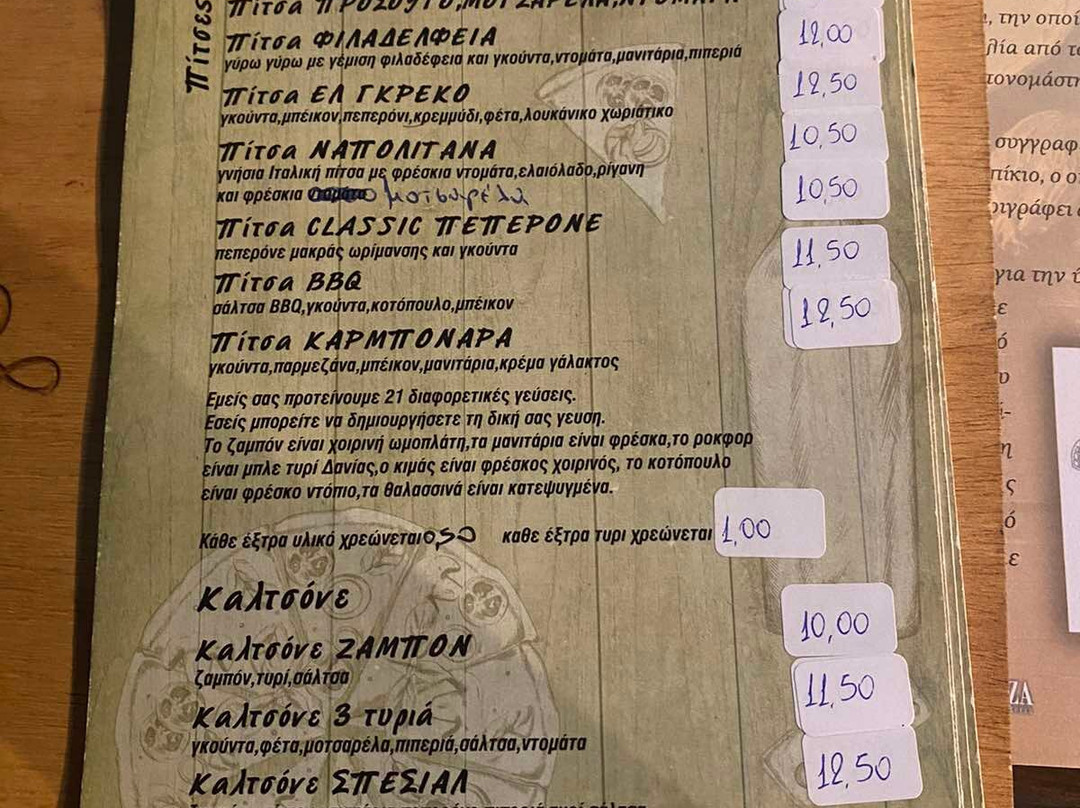 Πίτσες
Πίτσα ΠΡΟΣΟΥΤΟ,ΜΟΤΣΑΡΕΛΑ,ΝΤΟΜΑΤΑ
Πίτσα ΦΙΛΑΔΕΛΦΕΙΑ 12,00
γύρω γύρω με γέμιση φιλαδέφεια και γκούντα,ντομάτα,μανιτάρια,πιπεριά
Πίτσα ΕΛ ΓΚΡΕΚΟ 12,50
γκούντα,μπέικον,πεπερόνι,κρεμμύδι,φέτα,λουκάνικο χωριάτικο
Πίτσα ΝΑΠΟΛΙΤΑΝΑ 10,50
γνήσια Ιταλική πίτσα με φρέσκια ντομάτα,ελαιόλαδο,ρίγανη
και φρέσκια μοτσαρέλα 10,50
Πίτσα CLASSIC ΠΕΠΕΡΟΝΕ
πεπερόνε μακράς ωρίμανσης και γκούντα 11,50
Πίτσα BBQ
σάλτσα BBQ,γκούντα,κοτόπουλο,μπέικον 12,50
Πίτσα ΚΑΡΜΠΟΝΑΡΑ
γκούντα,παρμεζάνα,μπέικον,μανιτάρια,κρέμα γάλακτος
Εμείς σας προτείνουμε 21 διαφορετικές γεύσεις.
Εσείς μπορείτε να δημιουργήσετε τη δική σας γευση.
Το ζαμπόν είναι χοιρινή ωμοπλάτη,τα μανιτάρια είναι φρέσκα,το ροκφορ
είναι μπλε τυρί Δανίας,ο κιμάς είναι φρέσκος χοιρινός, το κοτόπουλο
είναι φρέσκο ντόπιο,τα θαλασσινά είναι κατεψυγμένα.
Κάθε έξτρα υλικό χρεώνεται 0,50 καθε έξτρα τυρι χρεώνεται 1,00
Καλτσόνε
10,00
Καλτσόνε ΖΑΜΠΟΝ
ζαμπόν,τυρί,σάλτσα
11,50
Καλτσόνε 3 τυριά
γκούντα,φέτα,μοτσαρέλα,πιπεριά,σάλτσα,ντομάτα
12,50
Καλτσόνε ΣΠΕΣΙΑΛ
την οποί
λία από τ
τονομάστη
συγγραφ
πίκιο, ο ο
ριγράφει
για την ύ
ZA